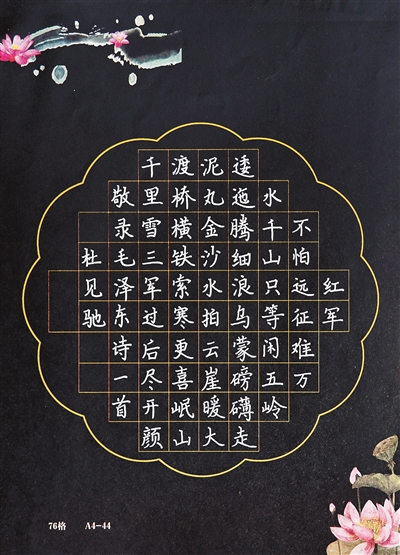 红军
不怕远征难万
水千山只等闲五岭
逶迤腾细浪乌蒙磅礴走
泥丸金沙水拍云崖暖大
渡桥横铁索寒更喜岷山
千里雪三军过后尽开颜
敬录毛泽东诗一首
杜见驰
76格 A4-44